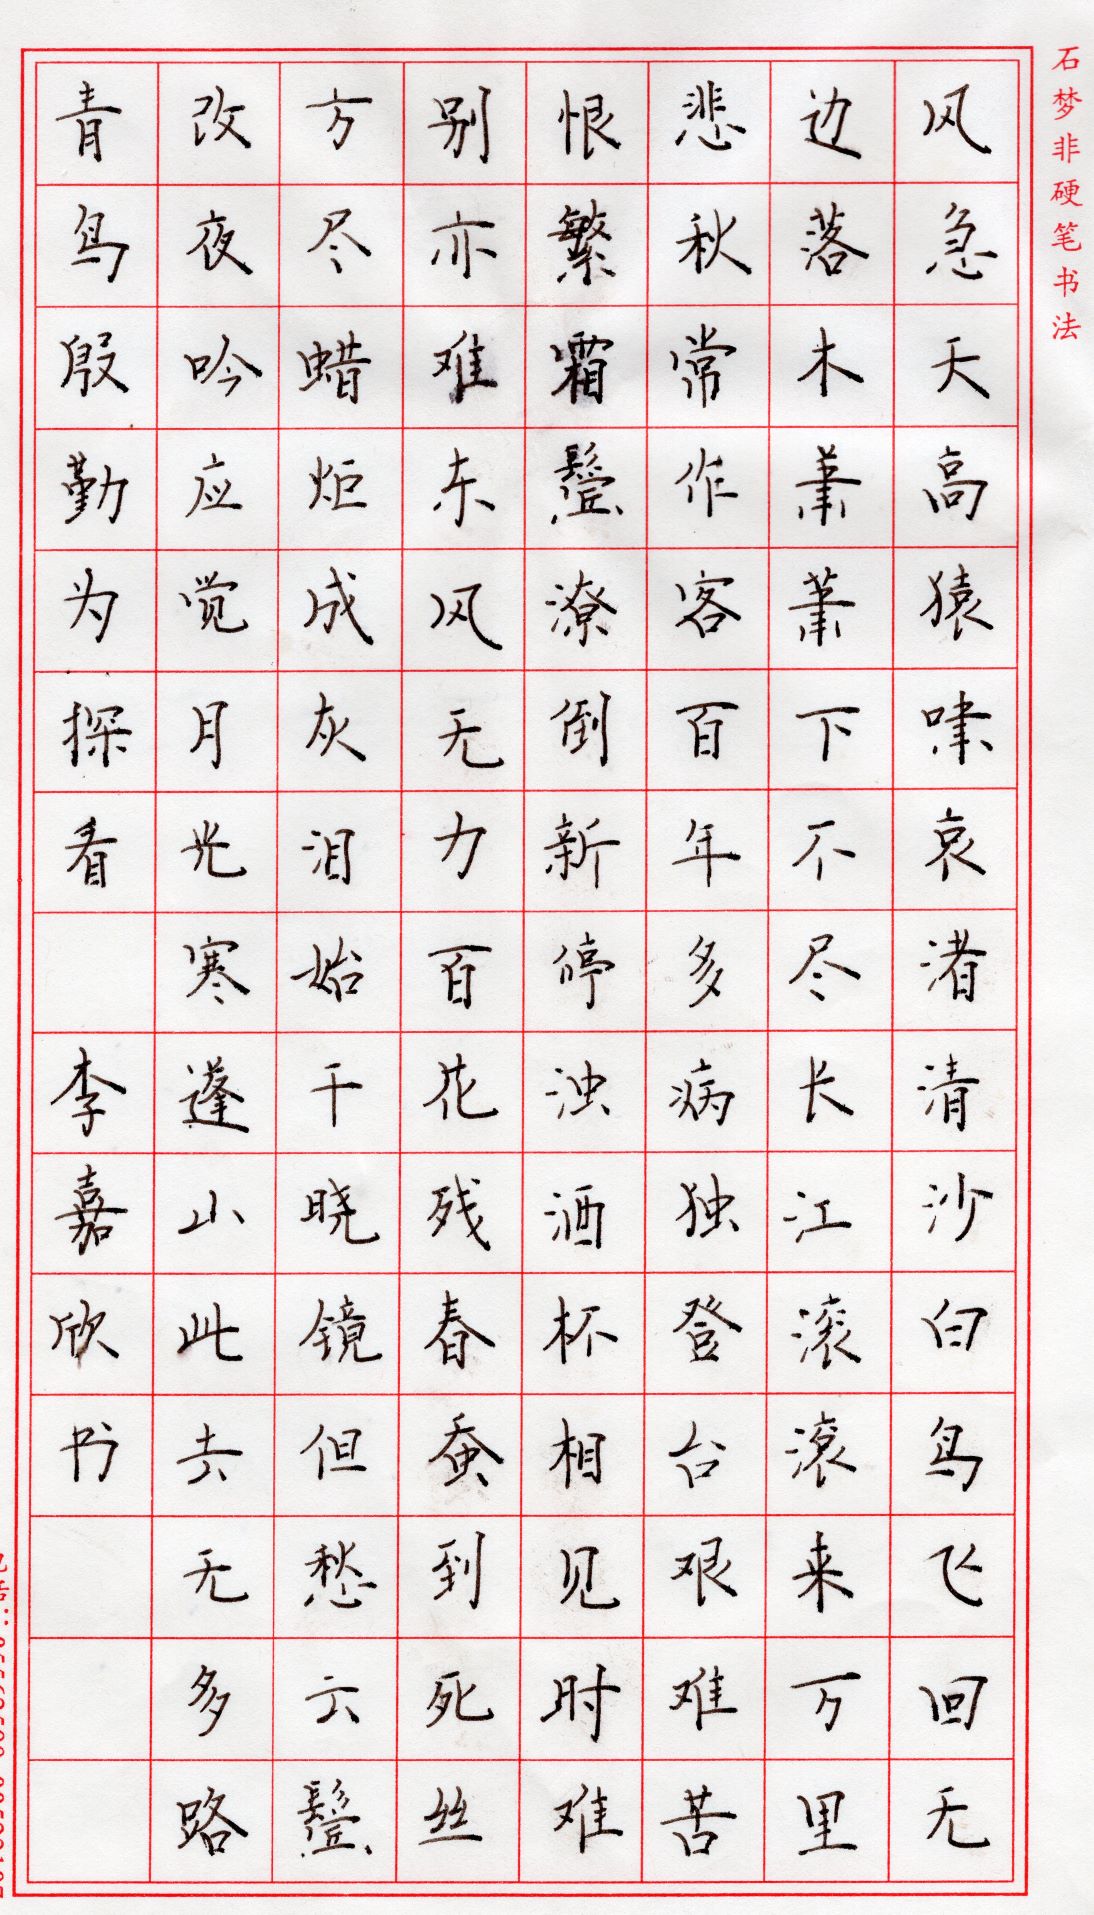 石梦非硬笔书法
风急天高猿啸哀渚清沙白鸟飞回无
边落木萧萧下不尽长江滚滚来万里
悲秋常作客百年多病独登台艰难苦
恨繁霜鬓潦倒新停浊酒杯相见时难
别亦难东风无力百花残春蚕到死丝
方尽蜡炬成灰泪始干晓镜但愁云鬓
改夜吟应觉月光寒蓬山此去无多路
青鸟殷勤为探看 李嘉欣书